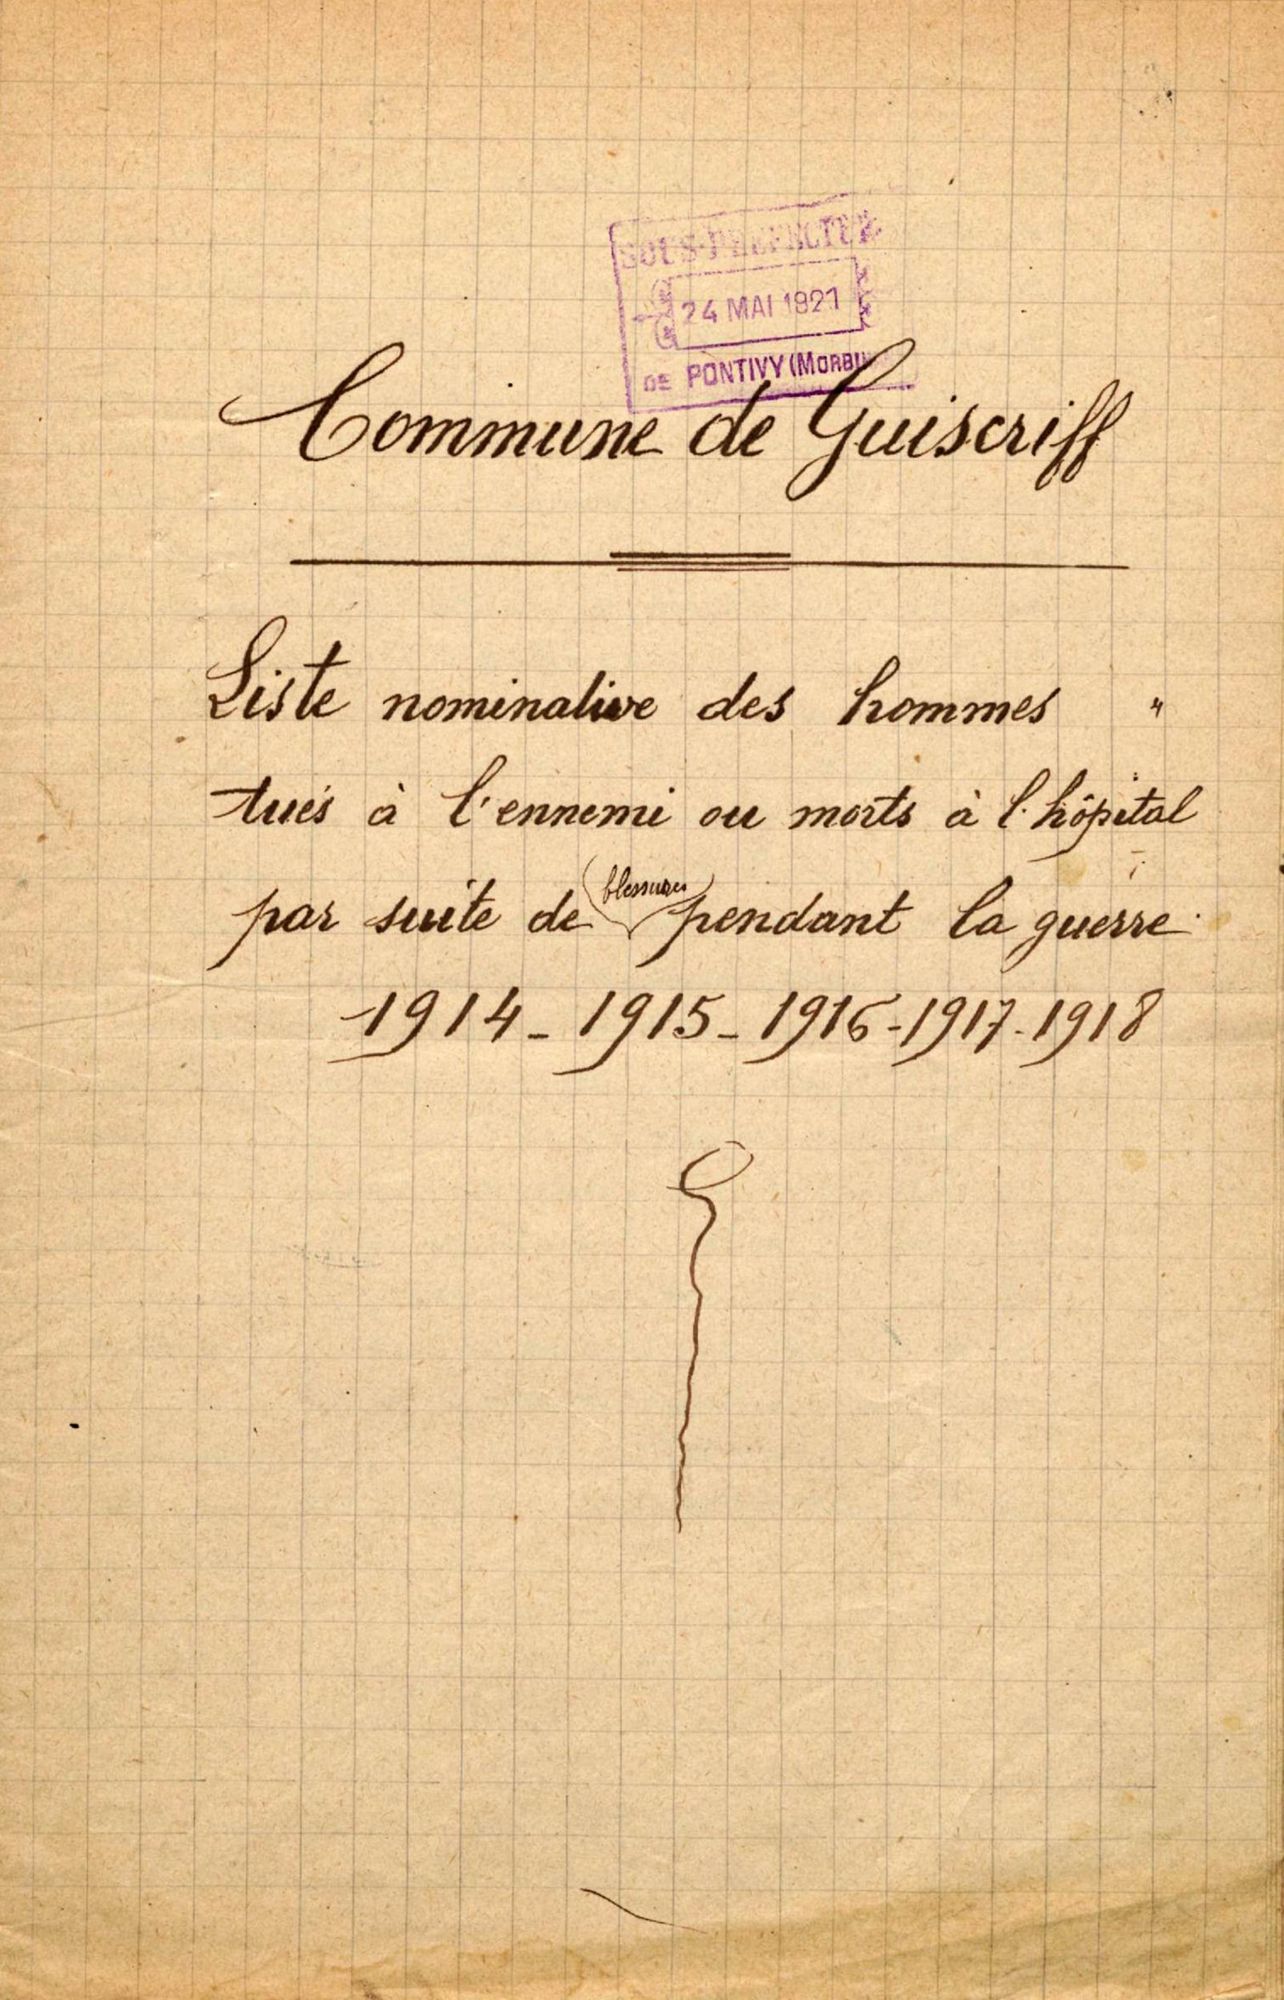 SOUS-PRÉFECTURE
24 MAI 1921
DE PONTIVY (MORBI
Commune de Guiscriff
Liste nominative des hommes "
tués à l'ennemi ou morts à l'hôpital
blessures
par suite de pendant la guerre
1914 - 1915 - 1916 - 1917 - 1918